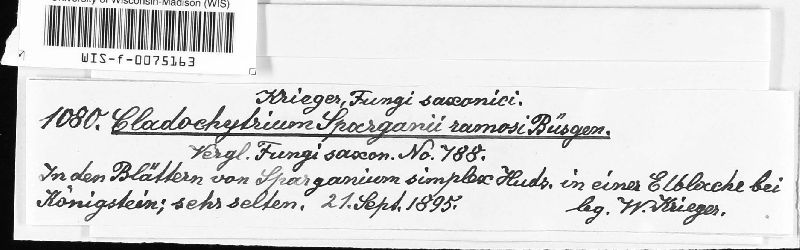 University of Wisconsin-Madison (WIS)
WIS-f-0075163
Krieger, Fungi saxonici.
1080. Cladochytrium Sparganii ramosi Büsgen.
Vergl. Fungi saxon. No. 788.
In den Blättern von Sparganium simplex Huds. in einer Elblache bei
Königstein; sehr selten. 21. Sept. 1895. leg. W. Krieger.